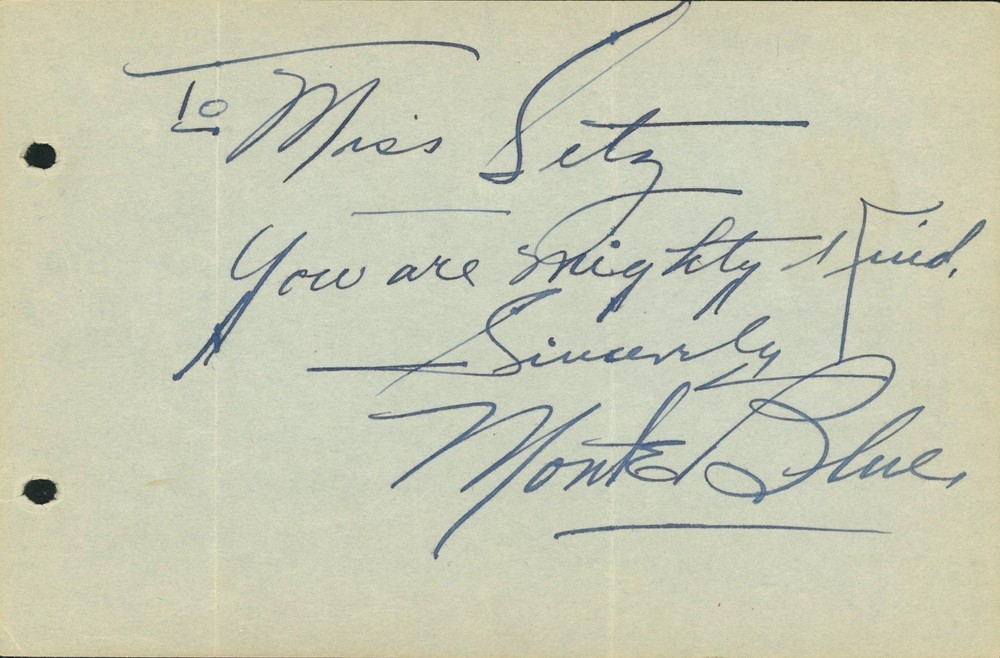 To Miss Setz
You are mighty kind.
Sincerely
Monte Blue.